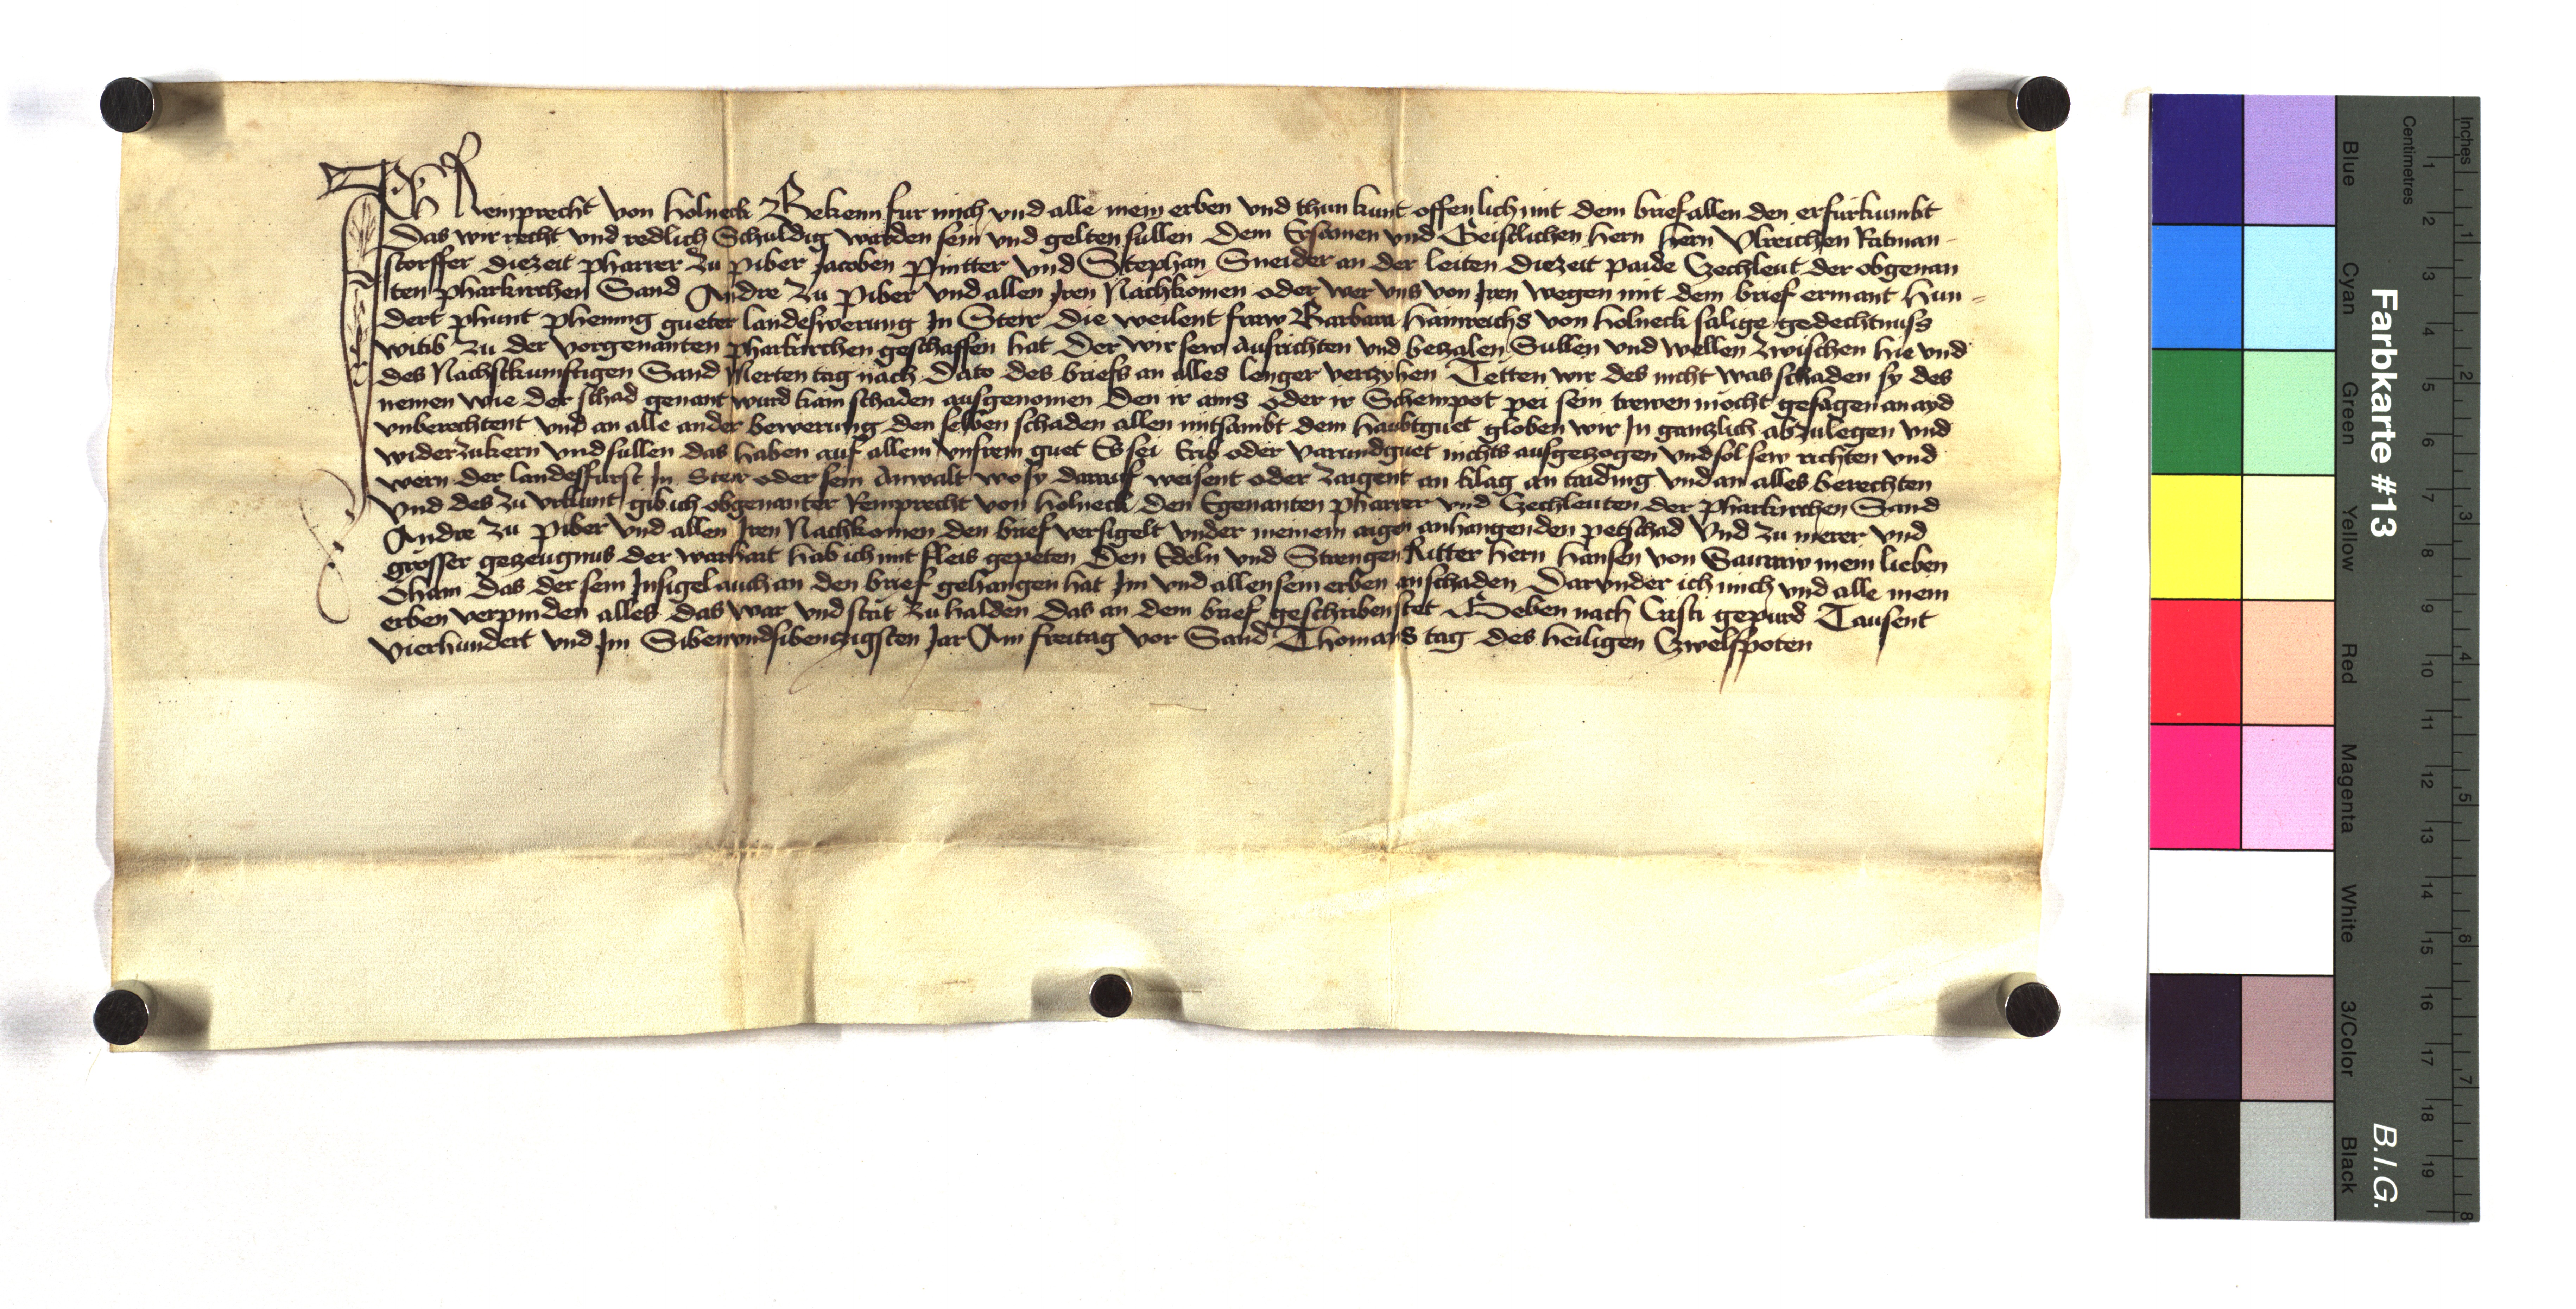 Ich Remprecht von Holneck Bekenn fur mich vnd alle mein erben vnd thun kunt offenlich mit dem brief allen den er furkumbt
Das wir recht vnd redlich Schuldig warden sein vnd gelten sullen Dem Ersamen vnd Geistlichen Hern Hern Vlreichen Ratman-
storffer diezeit pharrer zu piber Jacoben Pintter vnd Stephan Sneider an der leiten diezeit paide Czechleut der obgenan
ten pharkirchen Sand Andre zu piber vnd allen Jren Nachkomen oder wer vns von Jren wegen mit dem brief ermant Hun-
dert phunt phening gueter landeswerung In Steir die weilent fraw Barbara Hainreichs von Holneck salige gedechtnuss
witib zu der vorgenanten pharkirchen geschaffen hat Der wir sew Ausrichten vnd beczalen Sullen vnd wellen zwischen hie vnd
des Nachstkunftigen Sand Merten tag nach Dato des briefs an alles lenger verczyhen Tetten wir des nicht was schaden sy des
nemen wie der schad genant wurd kain schaden ausgenomen Den ir ains oder ir Scheinpot pei sein trewen mocht gesagen an ayd
vnberechtent vnd an alle ander bewerung den selben schaden allen mitsambt dem haubtguet globen wir In ganczlich abzulegen vnd
widerzukern vnd sullen das haben auf allem vnsrem guet Es sei Erb oder varundguet nichts ausgeczogen vnd sol sew richten vnd
wern der landesfurst In Steir oder sein Anwalt wo sy darauf weisent oder zaigent an klag an taiding vnd an alles berechten
Vnd des zu vrkunt gib ich obgenanter Remprecht von Holneck den Egenanten pharrer vnd Czechleuten der pharkirchen Sand
Andre zu piber vnd allen Jren Nachkomen den brief versigelt vnder meinem aigen anhangenden petschad Vnd zu merer vnd
grosser geczeugnus der warhait hab ich mit fleis gepeten Den Edeln vnd Strengen Ritter Hern Hansen von Sauraw mein lieben
Oham das der sein Insigel auch an den brief gehangen hat Im vnd allen sein erben an schaden Darvnder ich mich vnd alle mein
erben verpinden alles das war vnd stat zu halden das an dem brief geschriben stet Geben nach Cristi gepurd Tausent
vierhundert vnd Im Sibenvndsibenczigsten Jar Am freitag vor Sand Thomans tag des heiligen Czwelfpoten
Farbkarte #13
B.I.G.
Centimetres
Inches
Blue
Cyan
Green
Yellow
Red
Magenta
White
3/Color
Black
1 2 3 4 5 6 7 8 9 10 11 12 13 14 15 16 17 18 19
1 2 3 4 5 6 7 8